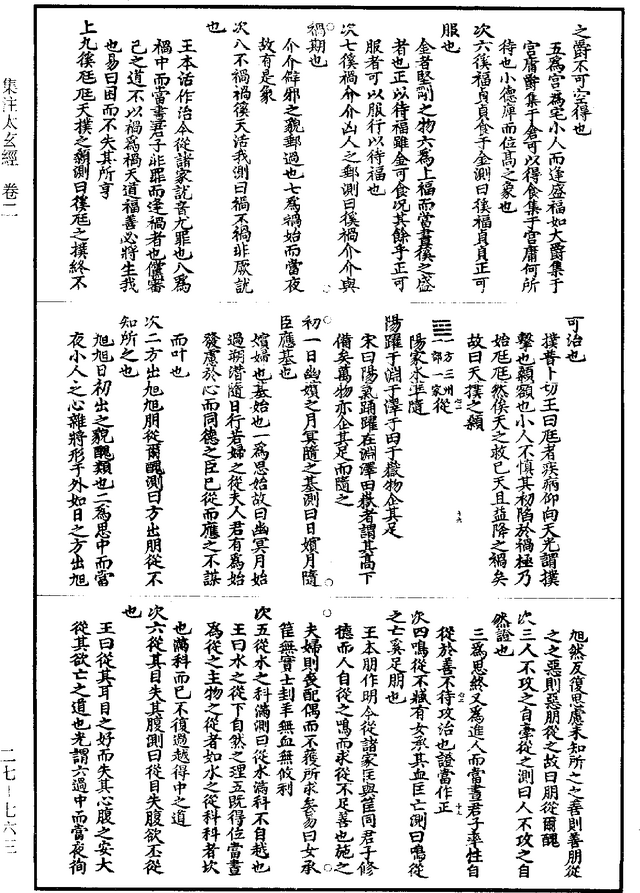 之爵不可空得也
五爲宮爲宅小人而逢盛福如大爵集于
宮庸爵集于倉可以得食集于宮庸何所
待也小德庳而位高之象也
次六徯福貞貞食于金測曰徯福貞貞正可
服也
金者堅剛之物六爲上福而當晝徯之盛
者也正以待福雖金可食况其餘乎正可
服者可以服行以待福也
次七徯禍介介凶人之郵測曰徯禍介介與
禍期也
介介僻邪之貌郵過也七爲禍始而當夜
故有是象
次八不禍禍徯天活我測曰禍不禍非厥訧
也
王本活作治今從諸家訧音尤罪也八爲
禍中而當晝君子非罪而逢禍者也儻審
己之道不以禍爲禍天道福善必將生我
也易曰困而不失其所亨
上九徯尫尫天撲之顙測曰徯尫之撲終不
可治也
撲普卜切王曰尫者疾病仰向天光謂撲
擊也顙額也小人不慎其初陷於禍極乃
始尫尫然俟天之救已天且益降之禍矣
故曰天撲之顙
一方三州
一部一家
從
陽家水準隨
陽躍于淵于澤于田于嶽物企其足
宋曰陽氣踊躍在淵澤田嶽者謂其高下
備矣萬物亦企其足而隨之
初一日幽嬪之月冥隨之基測曰日嬪月隨
臣應基也
嬪婦也基始也一爲思始故曰幽冥月始
過朔潛隨日行若婦之從夫人君有爲始
發慮於心而同德之臣已從而應之不謀
而叶也
次二方出旭旭朋從爾醜測曰方出朋從不
知所之也
旭旭日初出之貌醜類也二爲思中而當
夜小人之心雜將形于外如日之方出旭
旭然反復思慮未知所之之善則善朋從
之之惡則惡朋從之故曰朋從爾醜
次三人不攻之自牽從之測曰人不攻之自
然證也
三爲思終又爲進人而當晝君子率性自
從於善不待攻治也證當作正
次四鳴從不臧有女承其血匡亡測曰鳴從
之亡奚足朋也
王本朋作明今從諸家匡與筐同君子修
德而人自從之鳴而求從不足善也施之
夫婦則喪配偶而不獲所求矣易曰女承
筐無實士刲羊無血無攸利
次五從水之科滿測曰從水滿科不自越也
王曰水之從下自然之理五既得位當晝
爲從之主物之從者如水之從科科者坎
也滿科而已不復過越得中之道
次六從其目失其腹測曰從目失腹欲丕從
也
王曰從其耳目之好而失其心腹之安大
從其欲亡之道也光謂六過中而當夜徇
集注太玄經 卷二
二七—七六三